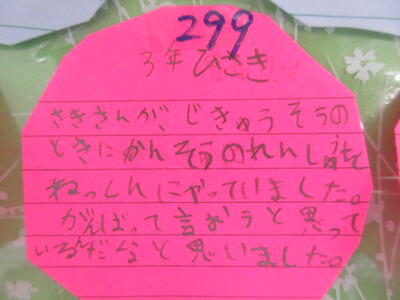 299
3年 ひさき
さきさんが、じきゅうそうの
ときにかんそうのれんしゅうを
ねっしんにやっていました。
がんばって言おうと思って
いるんだなと思いました。